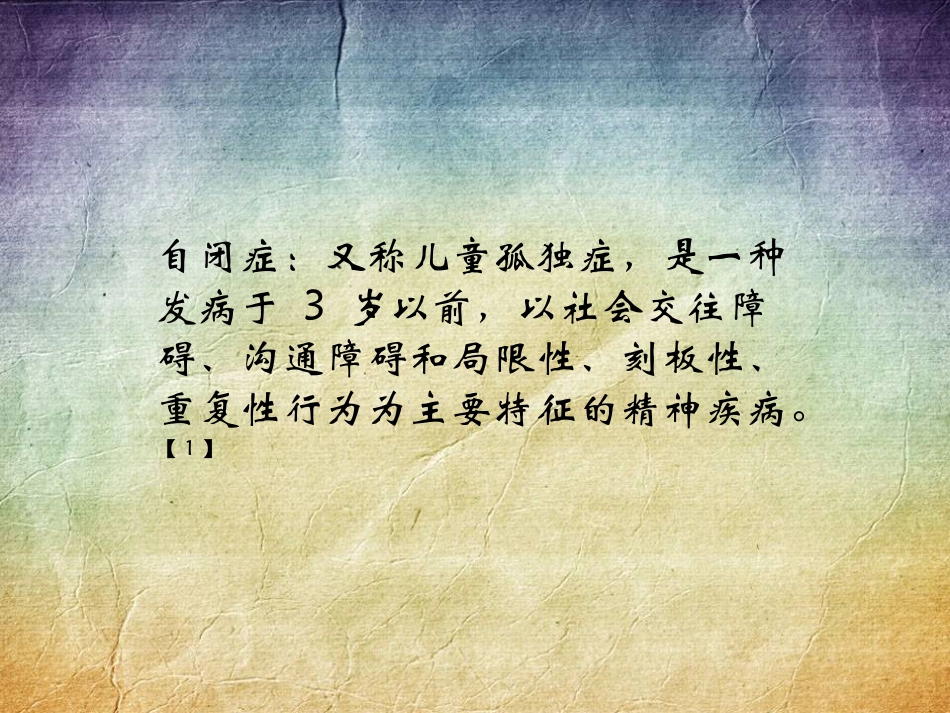 自闭症：又称儿童孤独症，是一种
发病于 3 岁以前，以社会交往障
碍、沟通障碍和局限性、刻板性、
重复性行为为主要特征的精神疾病。
【1】